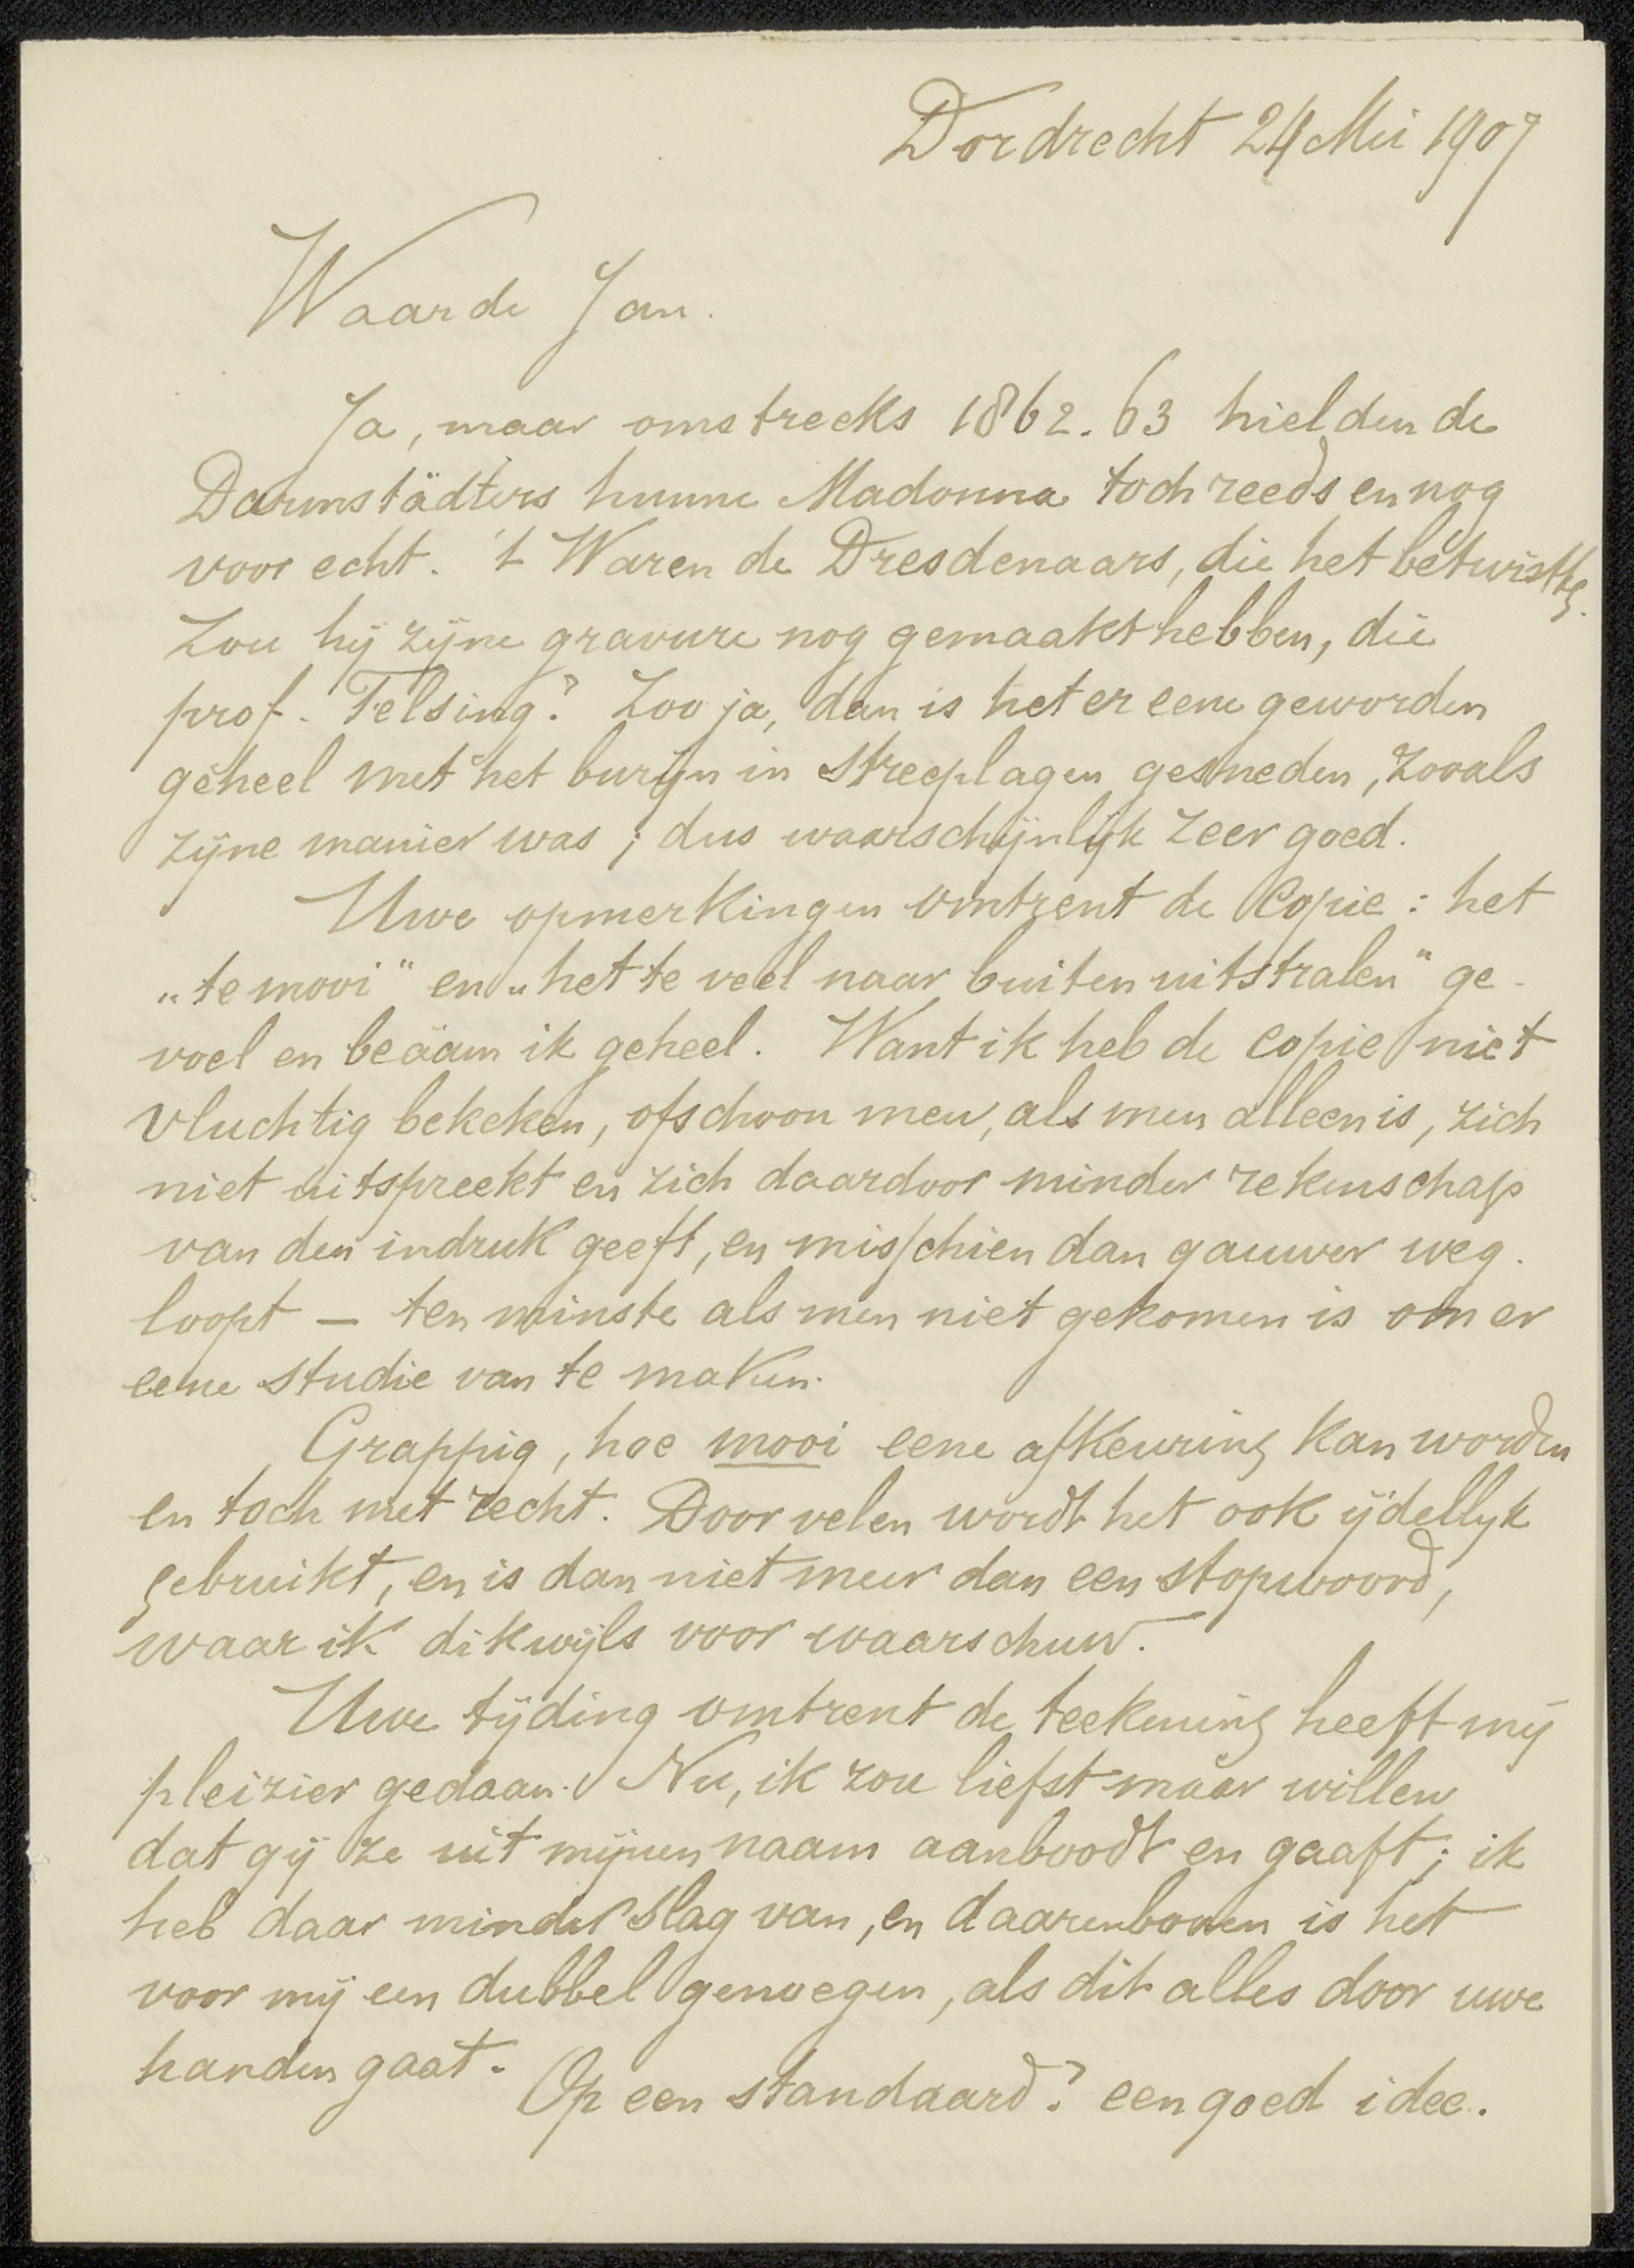 Dordrecht 24 Mei 1907
Waarde Jan.
Ja, maar omstreeks 1862.63 hielden de
Darmstädters hunne Madonna toch reeds en nog
voor echt. 't Waren de Dresdenaars, die het betwistten.
Zou hij zijne gravure nog gemaakt hebben, die
prof. Felsing? Zoo ja, dan is het er eene geworden
geheel met het burijn in streeplagen gesneden, zooals
zijne manier was; dus waarschijnlijk zeer goed.
Uwe opmerkingen omtrent de Copie: het
„te mooi" en „het te veel naar buiten uitstralen" ge-
voel en beäam ik geheel. Want ik heb de copie niet
vluchtig bekeken, ofschoon men, als men alleen is, zich
niet uitspreekt en zich daardoor minder rekenschap
van den indruk geeft, en misschien dan gauwer weg-
loopt — ten minste als men niet gekomen is om er
eene studie van te maken.
Grappig, hoe mooi eene afkeuring kan worden
en toch met recht. Door velen wordt het ook ijdellijk
gebruikt, en is dan niet meer dan een stopwoord,
waar ik dikwijls voor waarschuw.
Uwe tijding omtrent de teekening heeft mij
pleizier gedaan. Nu, ik zou liefst maar willen
dat gij ze uit mijnen naam aanboodt en gaaft; ik
heb daar minder slag van, en daarenboven is het
voor mij een dubbel genoegen, als dit alles door uwe
handen gaat. Op een standaard? een goed idee.